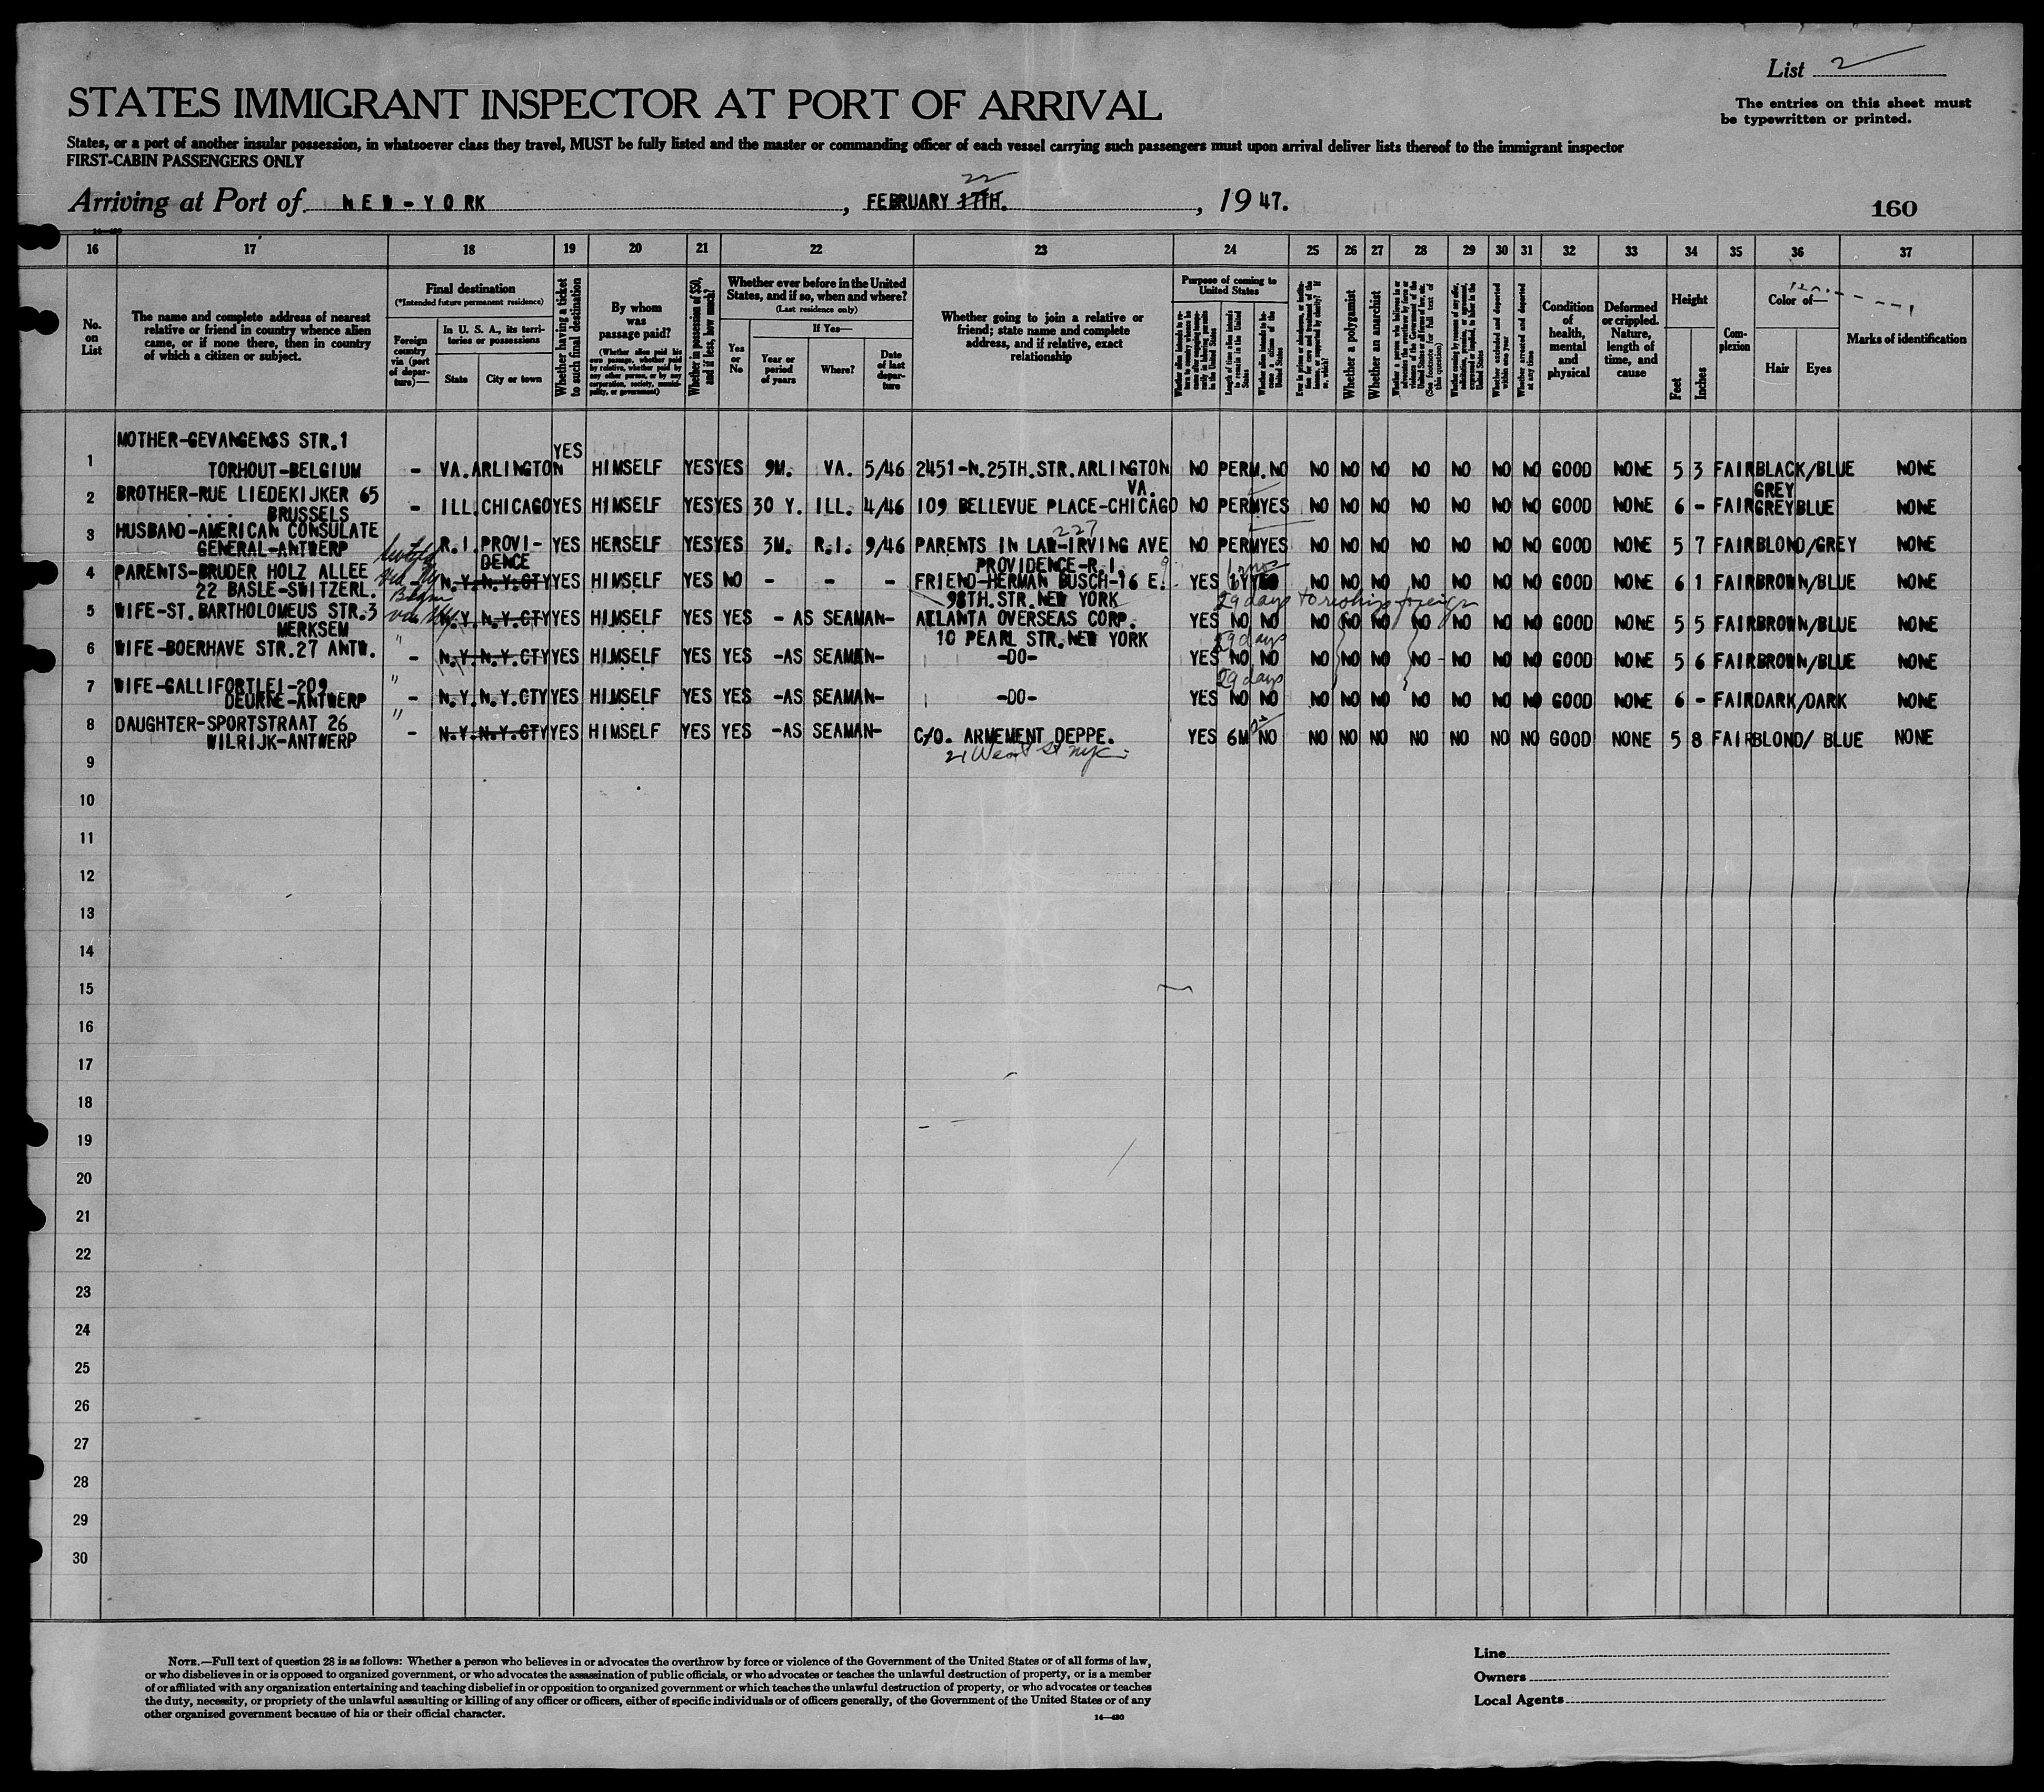 List 2
STATES IMMIGRANT INSPECTOR AT PORT OF ARRIVAL
The entries on this sheet must
be typewritten or printed.
States, or a port of another insular possession, in whatsoever class they travel, MUST be fully listed and the master or commanding officer of each vessel carrying such passengers must upon arrival deliver lists thereof to the immigrant inspector
FIRST-CABIN PASSENGERS ONLY
22
Arriving at Port of NEW-YORK, FEBRUARY 17TH., 1947.
160
16 17 18 19 20 21 22 23 24 25 26 27 28 29 30 31 32 33 34 35 36 37
No. on List
The name and complete address of nearest relative or friend in country whence alien came, or if none there, then in country of which a citizen or subject.
Final destination
(*Intended future permanent residence)
Foreign country via (port of departure)—
In U. S. A., its territories or possessions
State
City or town
Whether having a ticket to such final destination
By whom was passage paid?
(Whether alien paid his own passage, whether paid by relative, whether paid by any other person, or by any corporation, society, municipality, or government)
Whether in possession of $50, and if less, how much?
Whether ever before in the United States, and if so, when and where?
(Last residence only)
Yes or No
If Yes—
Year or period of years
Where?
Date of last departure
Whether going to join a relative or friend; state name and complete address, and if relative, exact relationship
Purpose of coming to United States
Length of time alien intends to remain in the United States
Whether a polygamist
Whether an anarchist
Whether excluded and deported within one year
Whether arrested and deported at any time
Condition of health, mental and physical
Deformed or crippled. Nature, length of time, and cause
Height
Feet
Inches
Complexion
Color of—
Hair
Eyes
Marks of identification
MOTHER-GEVANGENSS STR.1
YES
1 TORHOUT-BELGIUM - VA. ARLINGTON HIMSELF YES YES 9M. VA. 5/46 2451-N.25TH.STR.ARLINGTON NO PERM. NO NO NO NO NO NO NO NO GOOD NONE 5 3 FAIR BLACK/BLUE NONE
VA.
2 BROTHER-RUE LIEDEKIJKER 65 GREY
BRUSSELS - ILL. CHICAGO YES HIMSELF YES YES 30 Y. ILL. 4/46 109 BELLEVUE PLACE-CHICAGO NO PERM YES NO NO NO NO NO NO NO GOOD NONE 6 - FAIR GREY BLUE NONE
3 HUSBAND-AMERICAN CONSULATE 227
GENERAL-ANTWERP R.I. PROVI- YES HERSELF YES YES 3M. R.I. 9/46 PARENTS IN LAW-IRVING AVE NO PERM YES NO NO NO NO NO NO NO GOOD NONE 5 7 FAIR BLOND/GREY NONE
DENCE PROVIDENCE-R.I.
4 PARENTS-BRUDER HOLZ ALLEE
22 BASLE-SWITZERL. - N.Y. N.Y.CTY YES HIMSELF YES NO - - - FRIEND-HERMAN BUSCH-16 E. YES 1Y NO NO NO NO NO NO NO GOOD NONE 6 1 FAIR BROWN/BLUE NONE
98TH.STR.NEW YORK
29 days to reship foreign
5 WIFE-ST. BARTHOLOMEUS STR.3 N.Y. N.Y.CTY YES HIMSELF YES YES - AS SEAMAN- ATLANTA OVERSEAS CORP. YES NO NO NO NO NO NO NO NO NO GOOD NONE 5 5 FAIR BROWN/BLUE NONE
MERKSEM 10 PEARL STR.NEW YORK
29 days
6 WIFE-BOERHAVE STR.27 ANTW. " - N.Y. N.Y.CTY YES HIMSELF YES YES -AS SEAMAN- -DO- YES NO NO NO NO NO NO NO NO NO GOOD NONE 5 6 FAIR BROWN/BLUE NONE
29 days
7 WIFE-GALLIFORTLEI-209 "
DEURNE-ANTWERP - N.Y. N.Y.CTY YES HIMSELF YES YES -AS SEAMAN- -DO- YES NO NO NO NO NO NO NO NO NO GOOD NONE 6 - FAIR DARK/DARK NONE
8 DAUGHTER-SPORTSTRAAT 26 "
WILRIJK-ANTWERP - N.Y. N.Y.CTY YES HIMSELF YES YES -AS SEAMAN- C/O. ARMEMENT DEPPE. YES 6M NO NO NO NO NO NO NO NO GOOD NONE 5 8 FAIR BLOND/ BLUE NONE
21 West St NYC
9
10
11
12
13
14
15
16
17
18
19
20
21
22
23
24
25
26
27
28
29
30
NOTE.—Full text of question 28 is as follows: Whether a person who believes in or advocates the overthrow by force or violence of the Government of the United States or of all forms of law,
or who disbelieves in or is opposed to organized government, or who advocates the assassination of public officials, or who advocates or teaches the unlawful destruction of property, or is a member
of or affiliated with any organization entertaining and teaching disbelief in or opposition to organized government or which teaches the unlawful destruction of property, or who advocates or teaches
the duty, necessity, or propriety of the unlawful assaulting or killing of any officer or officers, either of specific individuals or of officers generally, of the Government of the United States or of any
other organized government because of his or their official character.
14—480
Line
Owners
Local Agents